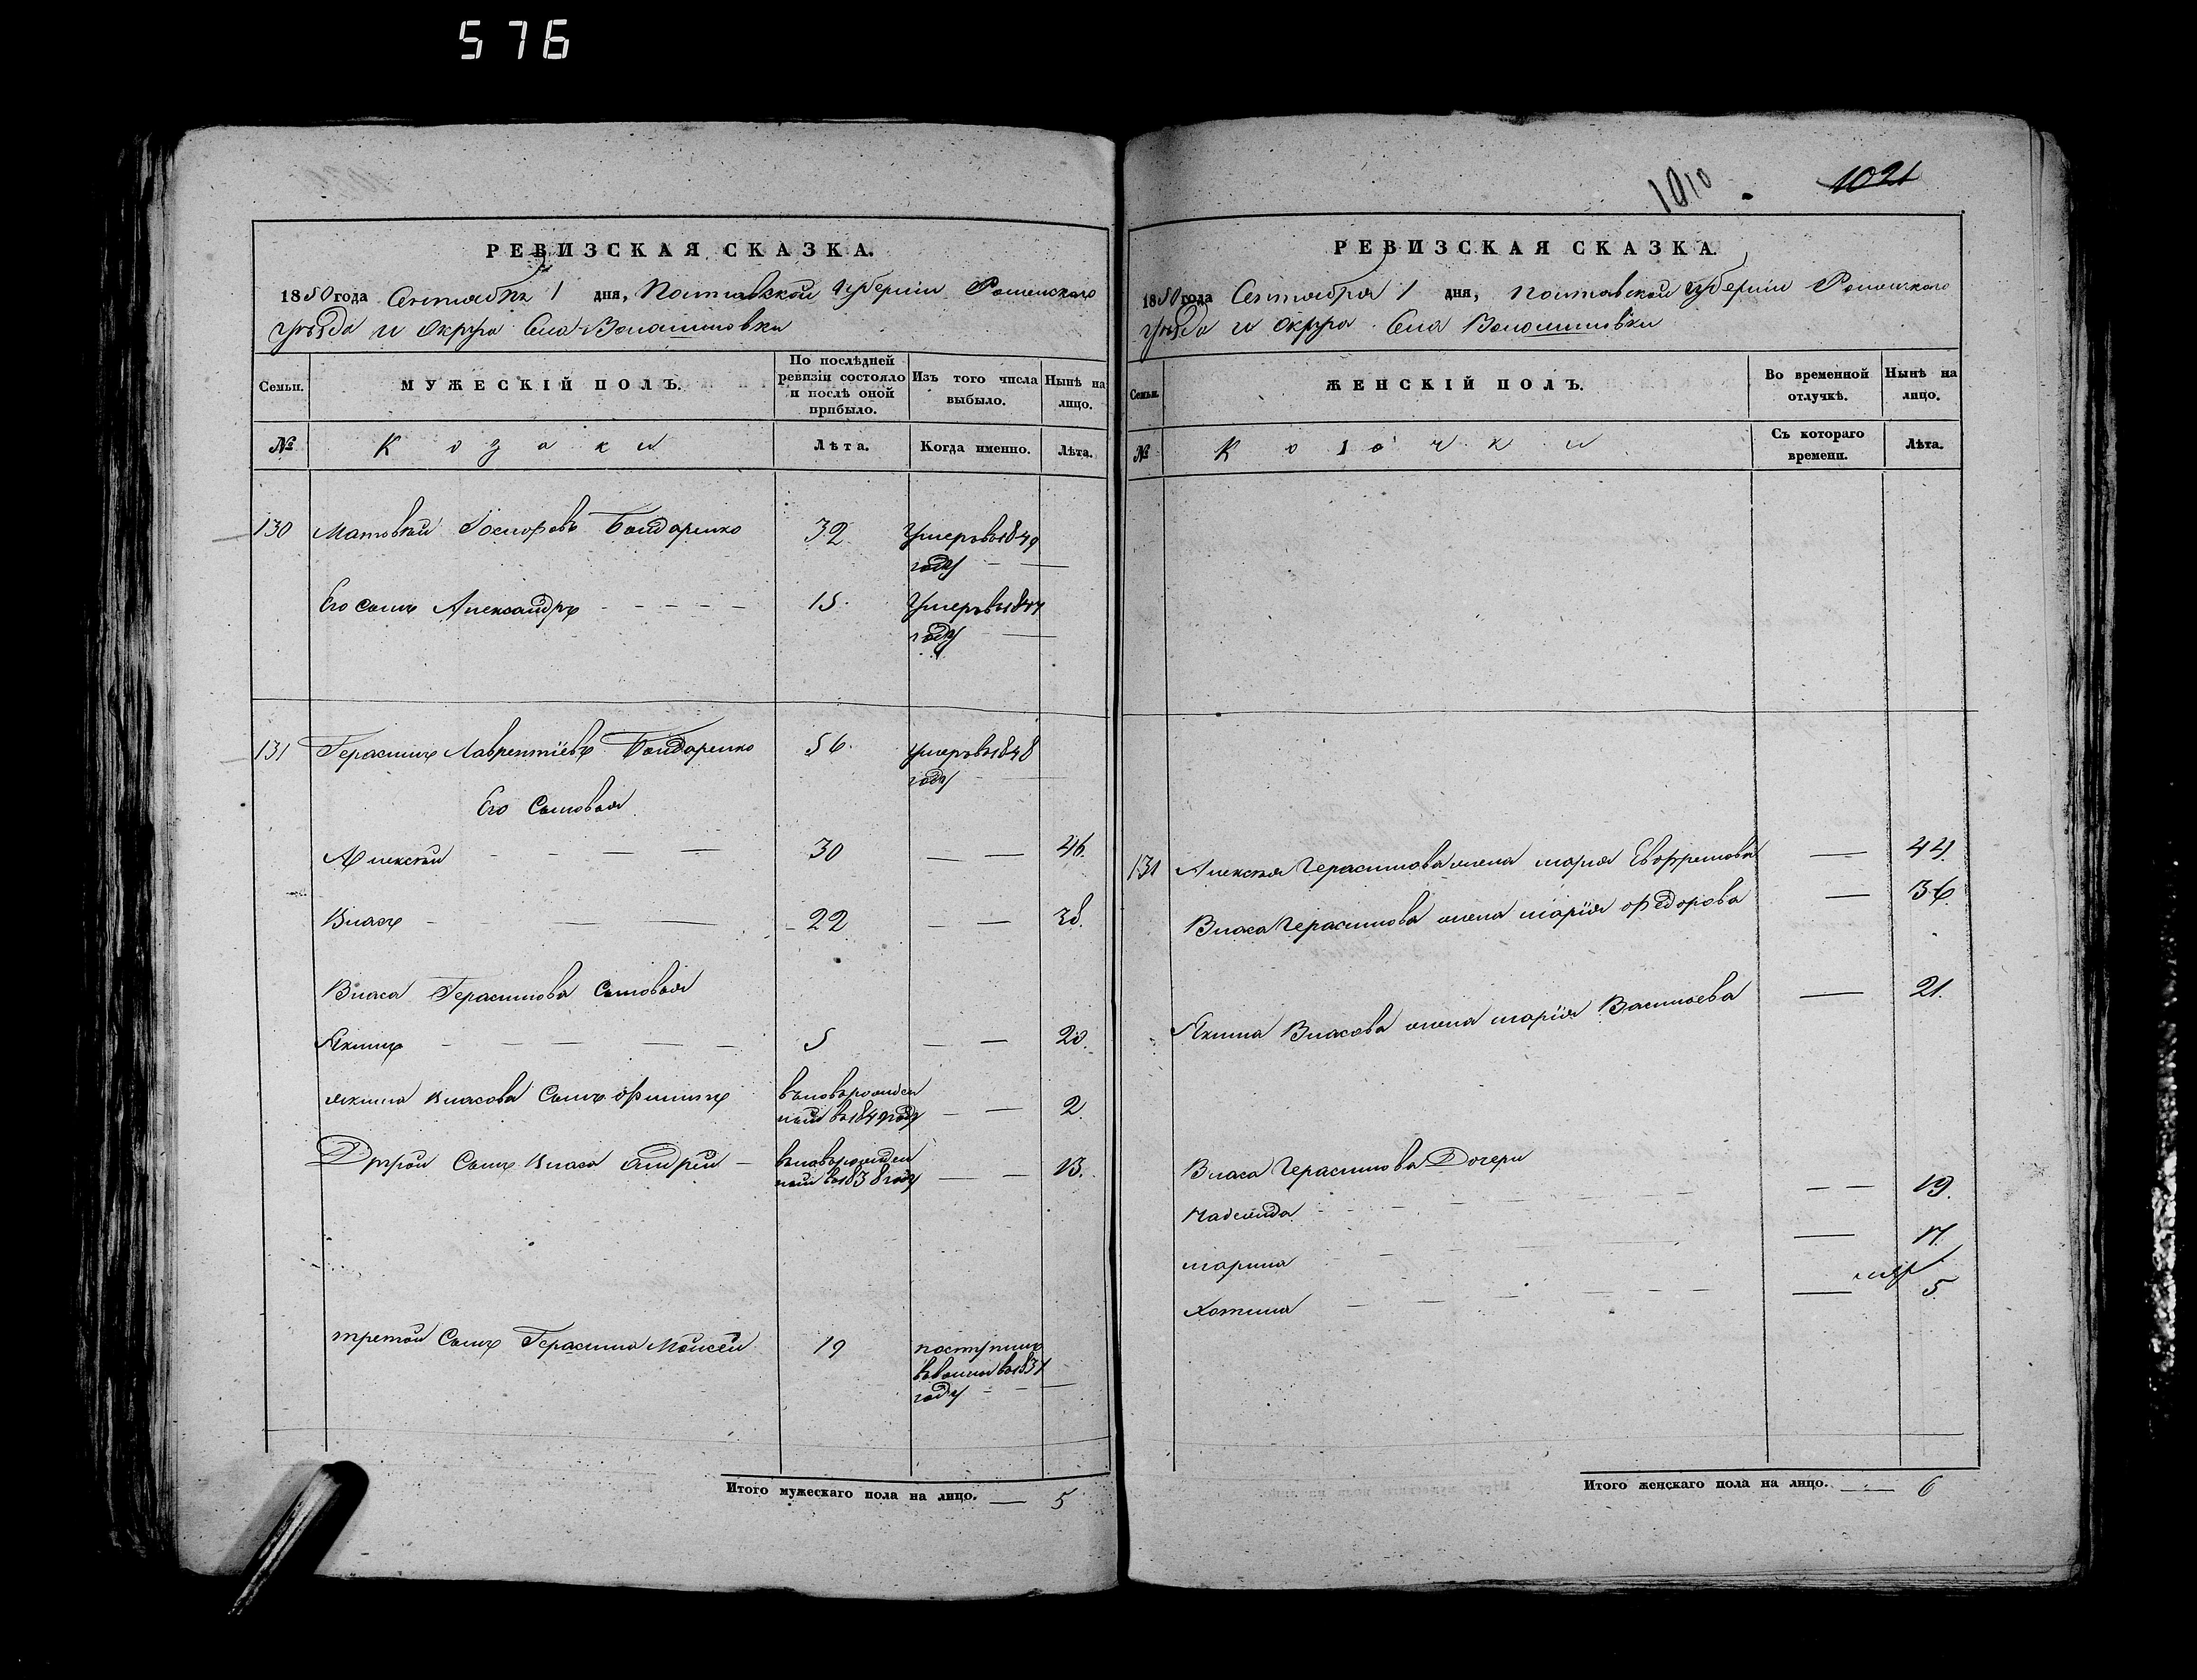 576
1010
1021
РЕВИЗСКАЯ СКАЗКА.
1850 года Сентября 1 дня, Полтавской губернии Роменского
уѣзда и округа Села Волошиновки
Семьи. МУЖЕСКІЙ ПОЛЪ. По послѣдней ревизіи состояло и послѣ оной прибыло. Изъ того числа выбыло. Нынѣ на лицо.
№ Козаки Лѣта. Когда именно. Лѣта.
130 Матовѣй Бондаренко 32 Умеръ въ 1849
году
Его сынъ Александръ 15. Умеръ въ 1847
году
131 Герасимъ Лаврентіевъ Бондаренко 56. умеръ въ 1848
году
Его Сыновья
Алексѣй 30 46.
Власъ 22 38.
Власа Герасимова Сыновья
Якимъ 5 20.
Якима Власова Сынъ Филипъ вновьрожден
ный въ 1849 году 2.
Другой Сынъ Власа Андрей вновьрожден
ный въ 1838 году 13.
третой Сынъ Герасима Мойсей 19 поступилъ
въ 1831
году
Итого мужескаго пола на лицо. 5
РЕВИЗСКАЯ СКАЗКА.
1850 года Сентября 1 дня, Полтавской губерніи Роменского
уѣзда и округа Села Волошиновки
Семьи. ЖЕНСКІЙ ПОЛЪ. Во временной отлучкѣ. Нынѣ на лицо.
№ Козачки Съ котораго времени. Лѣта.
131 Алексѣя Герасимова жена Марія Евфремова 44.
Власа Герасимова жена Марія Федорова 36.
Якима Власова жена Марія Васильева 21.
Власа Герасимова Дочери
Надежда 19.
Марина 17.
Хотина 5.
Итого женскаго пола на лицо. 6